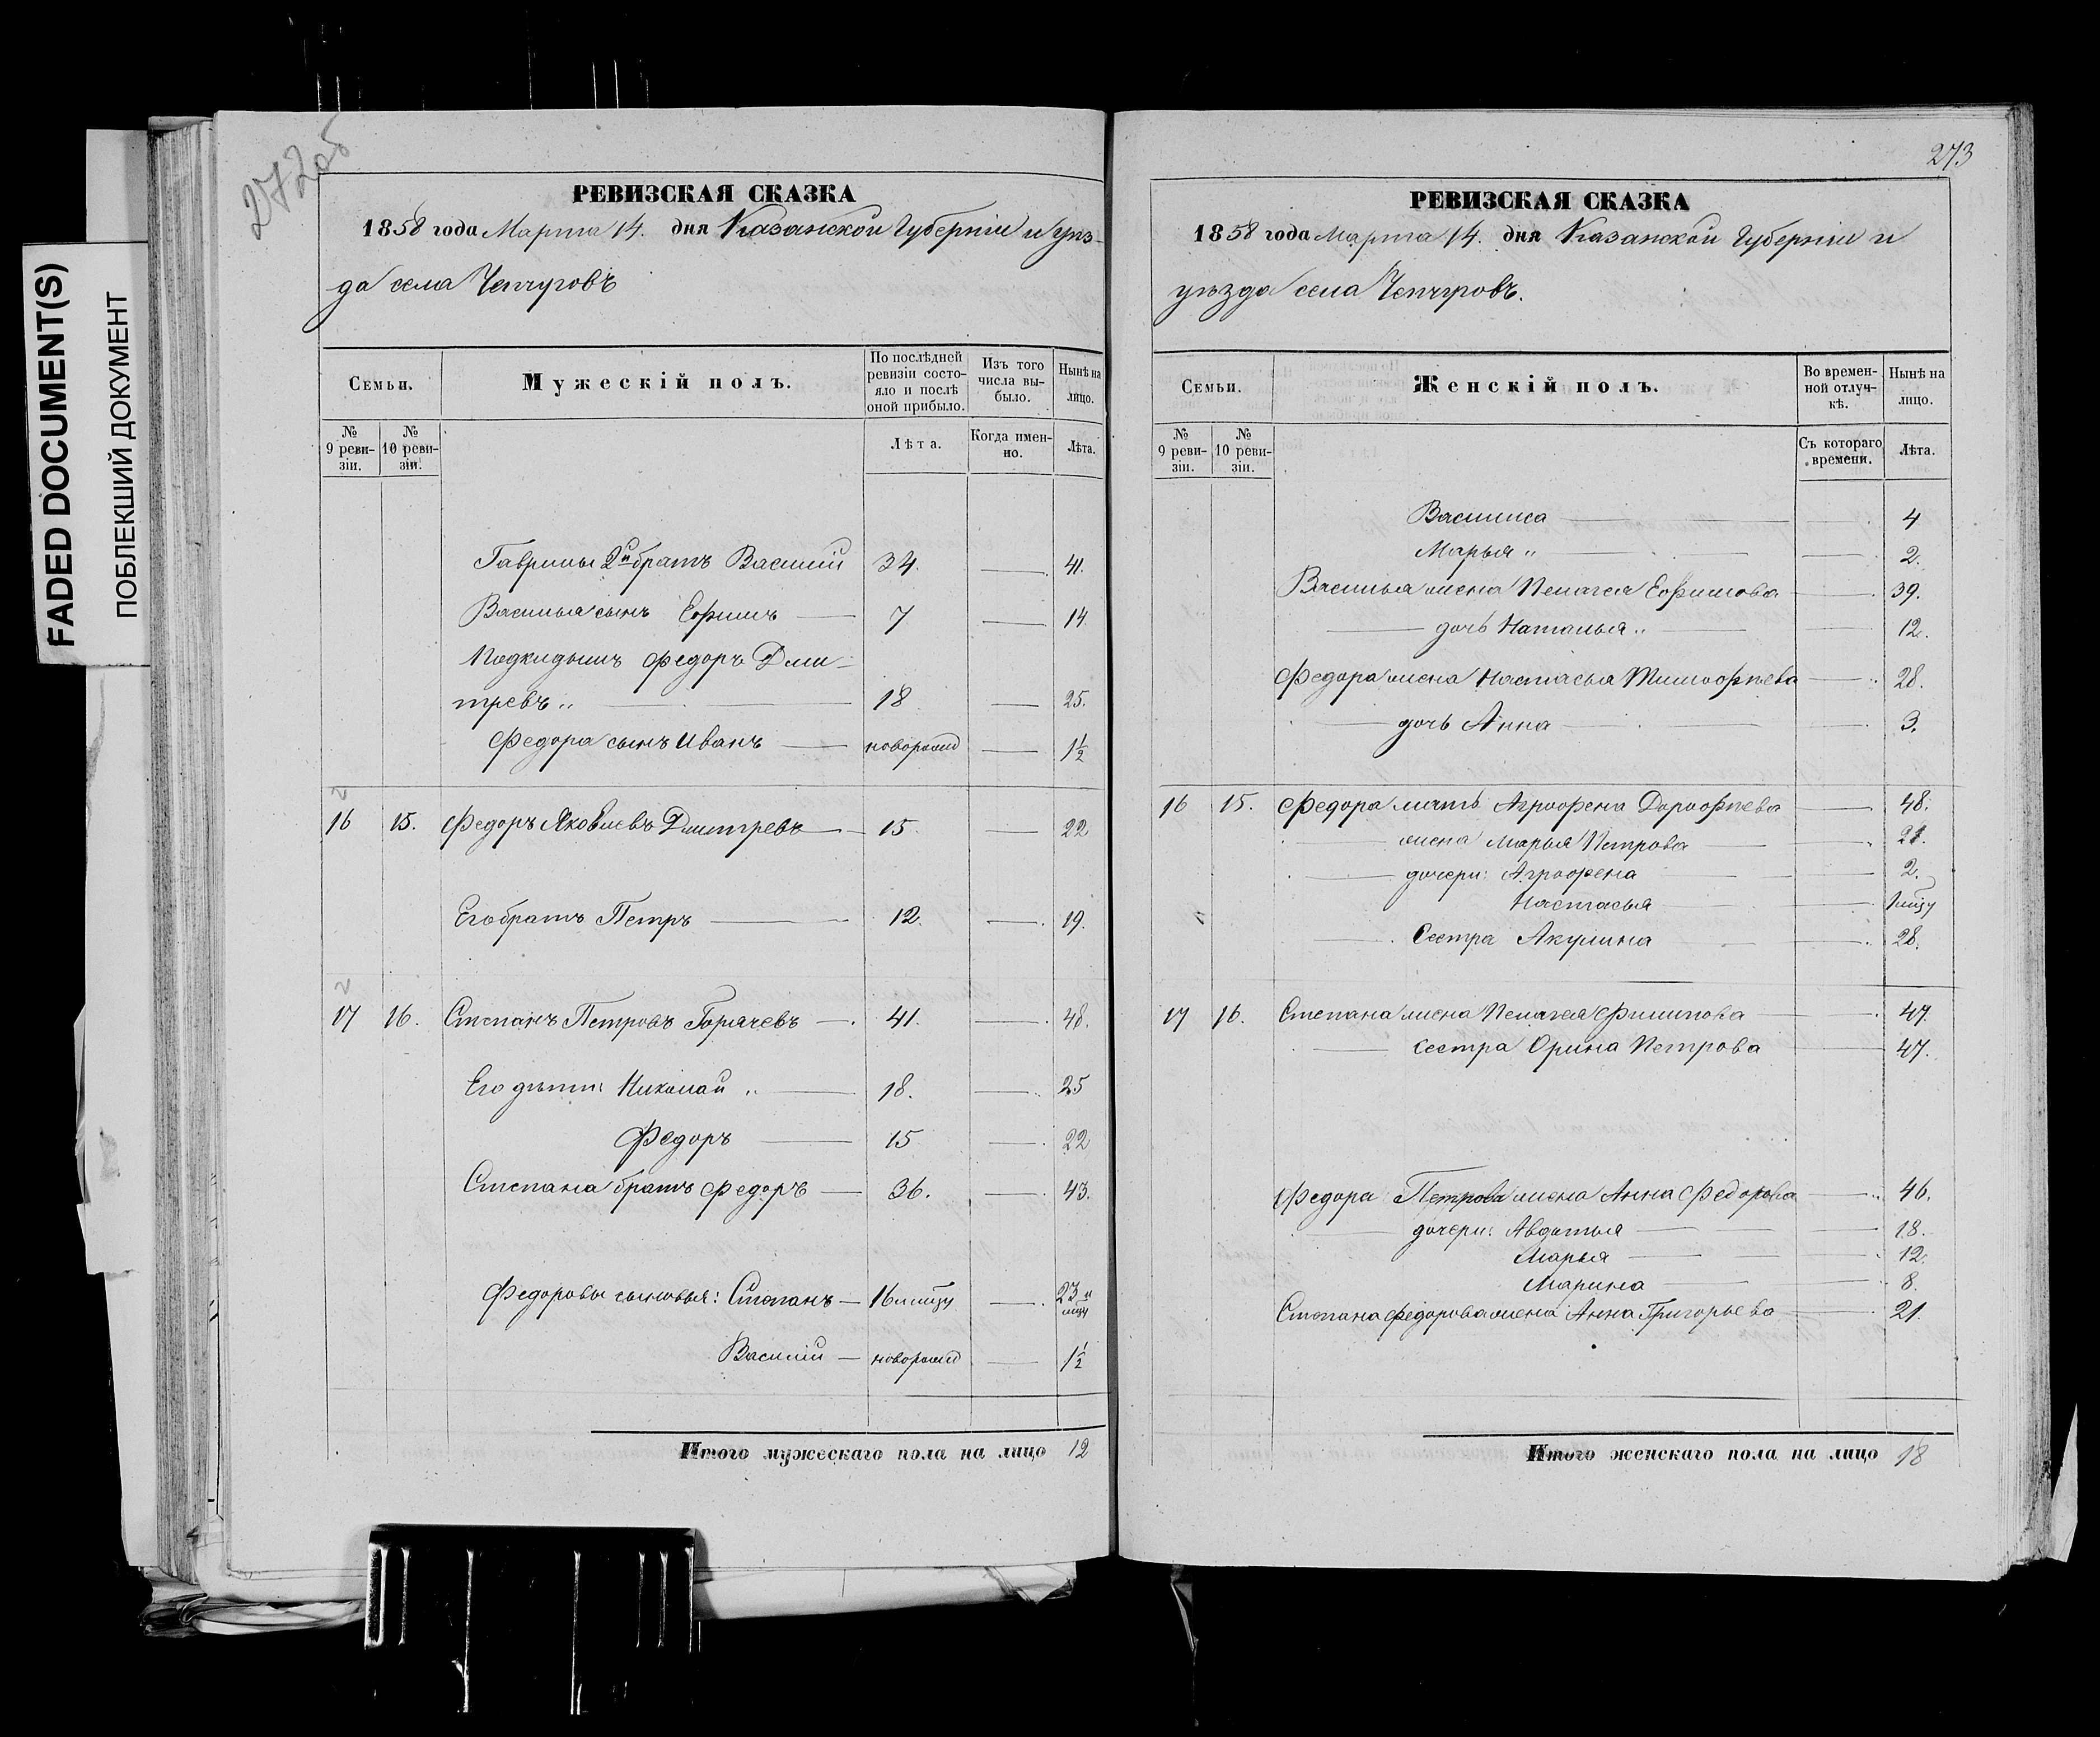 FADED DOCUMENT(S)
ПОБЛЕКШИЙ ДОКУМЕНТ
272об
РЕВИЗСКАЯ СКАЗКА
1858 года Марта 14. дня Казанской Губерніи и уѣз-
да села Чепчуговъ
Семьи.
Мужескій полъ.
По послѣдней ревизіи состояло и послѣ оной прибыло.
Изъ того числа выбыло.
Нынѣ на лицо.
№ 9 ревизіи.
№ 10 ревизіи.
Лѣта.
Когда именно.
Лѣта.
Гаврилы 2й братъ Василій 34. 41.
Василья сынъ Ефимъ 7 14
Подкидышъ Федоръ Дми-
тревъ 18 25.
Федора сынъ Иванъ новорожд 1 1/2
16 15. Федоръ Яковлевъ Дмитревъ 15. 22
Его братъ Петръ 12. 19.
17 16. Степанъ Петровъ Горячевъ 41. 48.
Его дѣти: Николай 18. 25
Федоръ 15 22
Степана братъ Федоръ 36. 43.
Федоровы сыновья: Степанъ 16 23
Василій новорожд 1 1/2
Итого мужескаго пола на лицо 12
273
РЕВИЗСКАЯ СКАЗКА
1858 года Марта 14. дня Казанской Губерніи и
уѣзда села Чепчуговъ.
Семьи.
Женскій полъ.
Во временной отлучкѣ.
Нынѣ на лицо.
№ 9 ревизіи.
№ 10 ревизіи.
Съ котораго времени.
Лѣта.
Василиса 4
Марья 2.
Василья жена Пелагея Ефимова 39.
дочь Наталья 12.
Федора жена Настасья Тимофѣева 28.
дочь Анна 3.
16 15. Федора мать Аграфена Дорофѣева 48.
жена Марья Петрова 21.
дочери: Аграфена 2.
Настасья
Сестра Акулина 28.
17 16. Степана жена Пелагея Филипова 47.
сестра Орина Петрова 47.
Федора Петрова жена Анна Федорова 46.
дочери: Авдотья 18.
Марья 12.
Марина 8.
Степана Федорова жена Анна Григорьева 21.
Итого женскаго пола на лицо 18